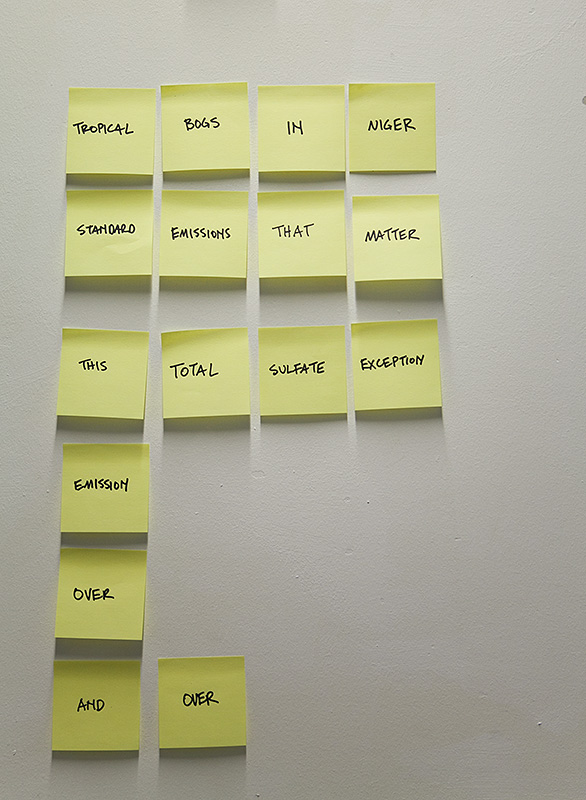 TROPICAL BOGS IN NIGER
STANDARD EMISSIONS THAT MATTER
THIS TOTAL SULFATE EXCEPTION
EMISSION
OVER
AND OVER